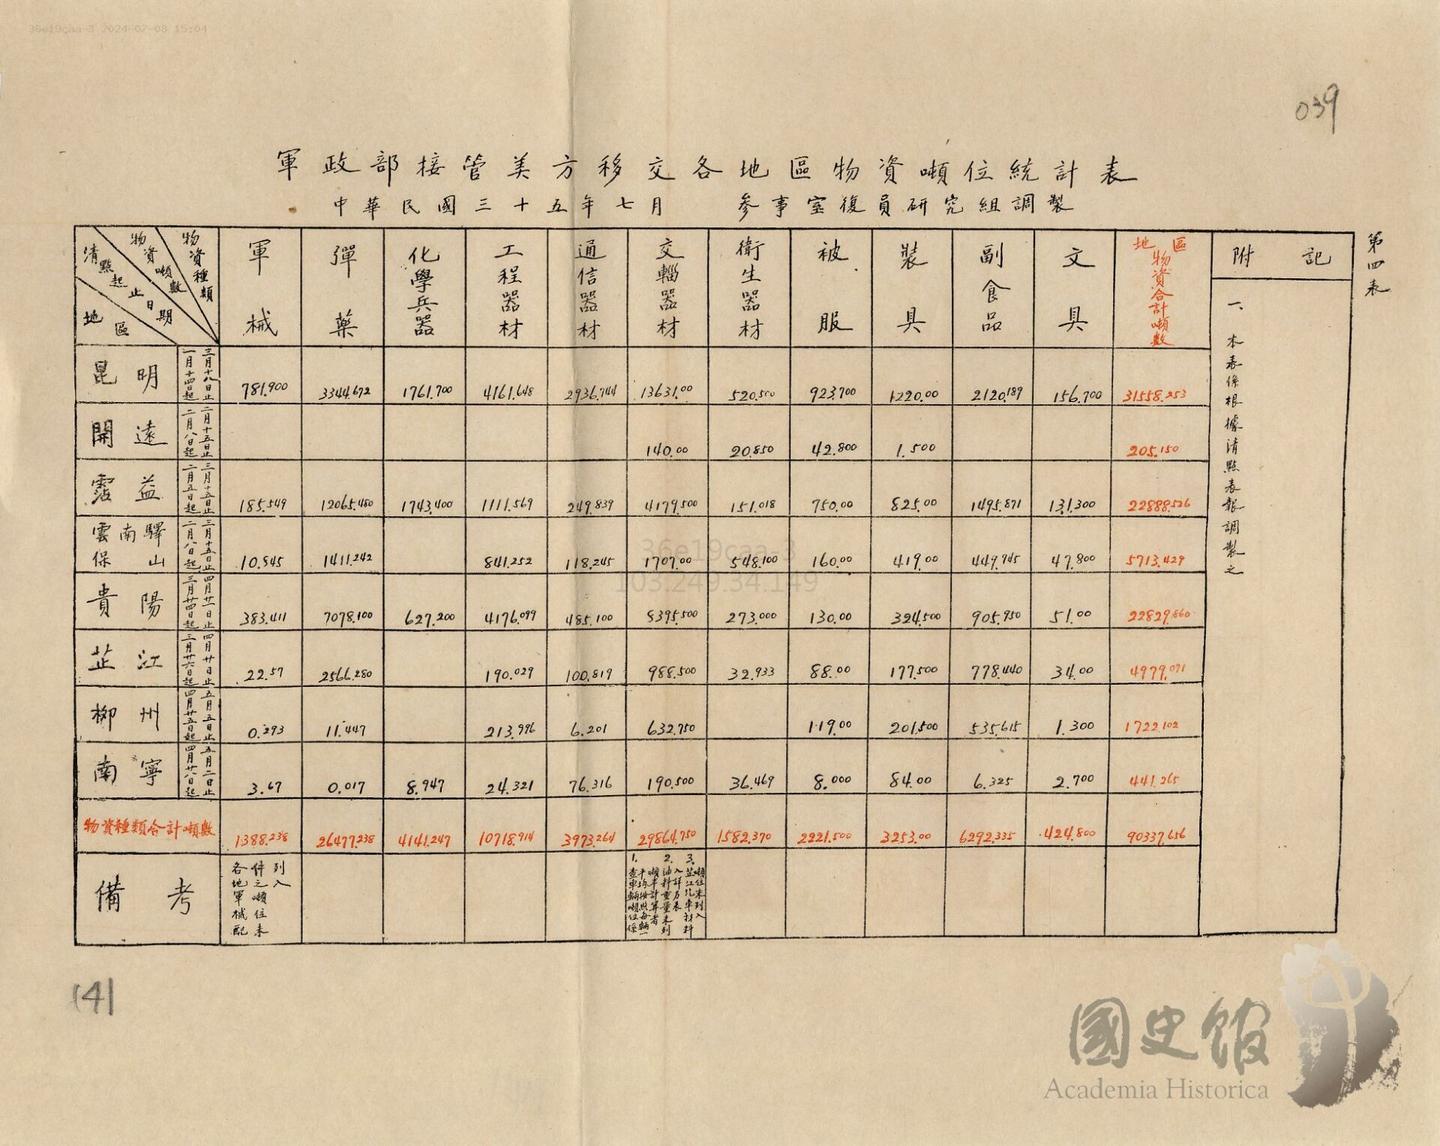 36e19caa-3 2024-07-08 15:04
039
軍政部接管美方移交各地區物資噸位統計表
中華民國三十五年七月 參事室復員研究組調製
第四表
物資種類 物資噸數 清點起止日期 地區 軍械 彈藥 化學兵器 工程器材 通信器材 交輜器材 衛生器材 被服 裝具 副食品 文具 地區物資合計噸數 附記
昆明 一月十四日起 三月十八日止 781.900 3344.672 1761.700 4161.648 2936.744 13631.00 520.500 923.700 1220.00 2120.189 156.700 31558.253
開遠 二月八日起 二月十五日止 140.00 20.850 42.800 1.500 205.150
霑益 二月五日起 三月十五日止 185.549 12065.480 1743.400 1111.569 249.839 4179.500 151.018 750.00 825.00 1495.871 131.300 22888.526
雲南驛 保山 二月八日起 三月十五日止 10.845 1411.242 841.252 118.245 1707.00 548.100 160.00 419.00 449.945 47.800 5713.429
貴陽 三月廿四日起 四月廿一日止 383.411 7078.100 627.200 4176.099 485.100 8395.500 273.000 130.00 324.500 905.950 51.00 22829.860
芷江 三月廿六日起 四月廿日止 22.57 2566.280 190.029 100.819 988.500 32.933 88.00 177.500 778.440 34.00 4979.071
柳州 四月廿五日起 五月五日止 0.293 11.447 213.996 6.201 632.750 119.00 201.500 535.615 1.300 1722.102
南寧 四月廿八日起 五月二日止 3.67 0.017 8.947 24.321 76.316 190.500 36.469 8.000 84.00 6.325 2.700 441.265
物資種類合計噸數 1388.238 26477.238 4141.247 10718.914 3973.264 29864.750 1582.370 2221.500 3253.00 6292.335 424.800 90337.656
備考
各地軍械配件之噸位未列入
1. 查車輛噸位係平均按照每輛一噸半計算者
2. 油料重量未列入計算表
3. 芷江汽車材料噸位未列入
一、本表係根據清點表報調製之
36e19caa-3
103.249.34.149
141
國史館
Academia Historica